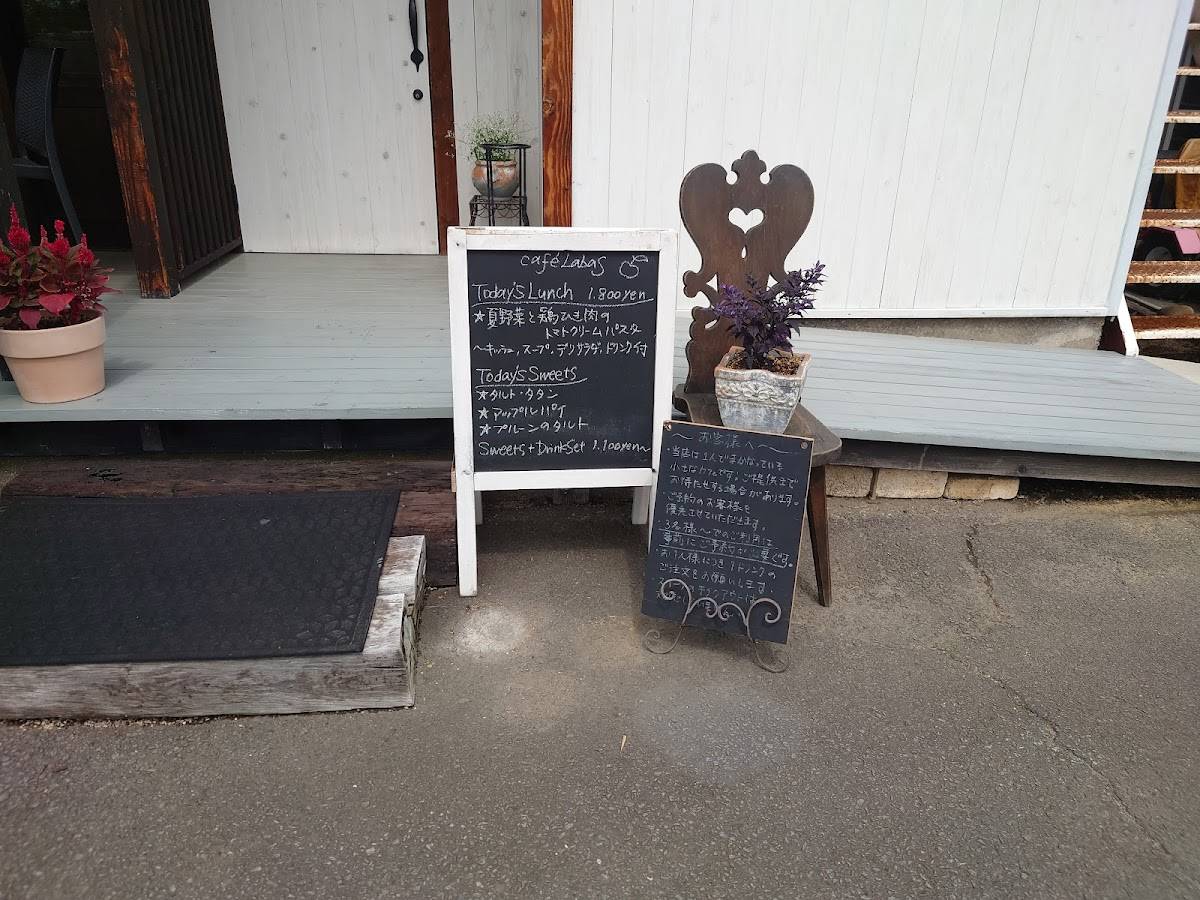 café Labas
Today's Lunch 1.800yen
★夏野菜と鶏ひき肉の
トマトクリームパスタ
〜キッシュ,スープ,デリサラダ,ドリンク付
Today's Sweets
★タルト・タタン
★アップルパイ
★プルーンのタルト
Sweets+DrinkSet 1.100yen〜
〜お客様へ〜
・当店は1人でまかなっている
小さなカフェです。ご提供まで
お待たせする場合があります。
・ご予約のお客様を
優先させていただきます。
・3名様〜でのご利用は
事前にご予約が必要です。
・お1人様につき1ドリンクの
ご注文をお願いします。